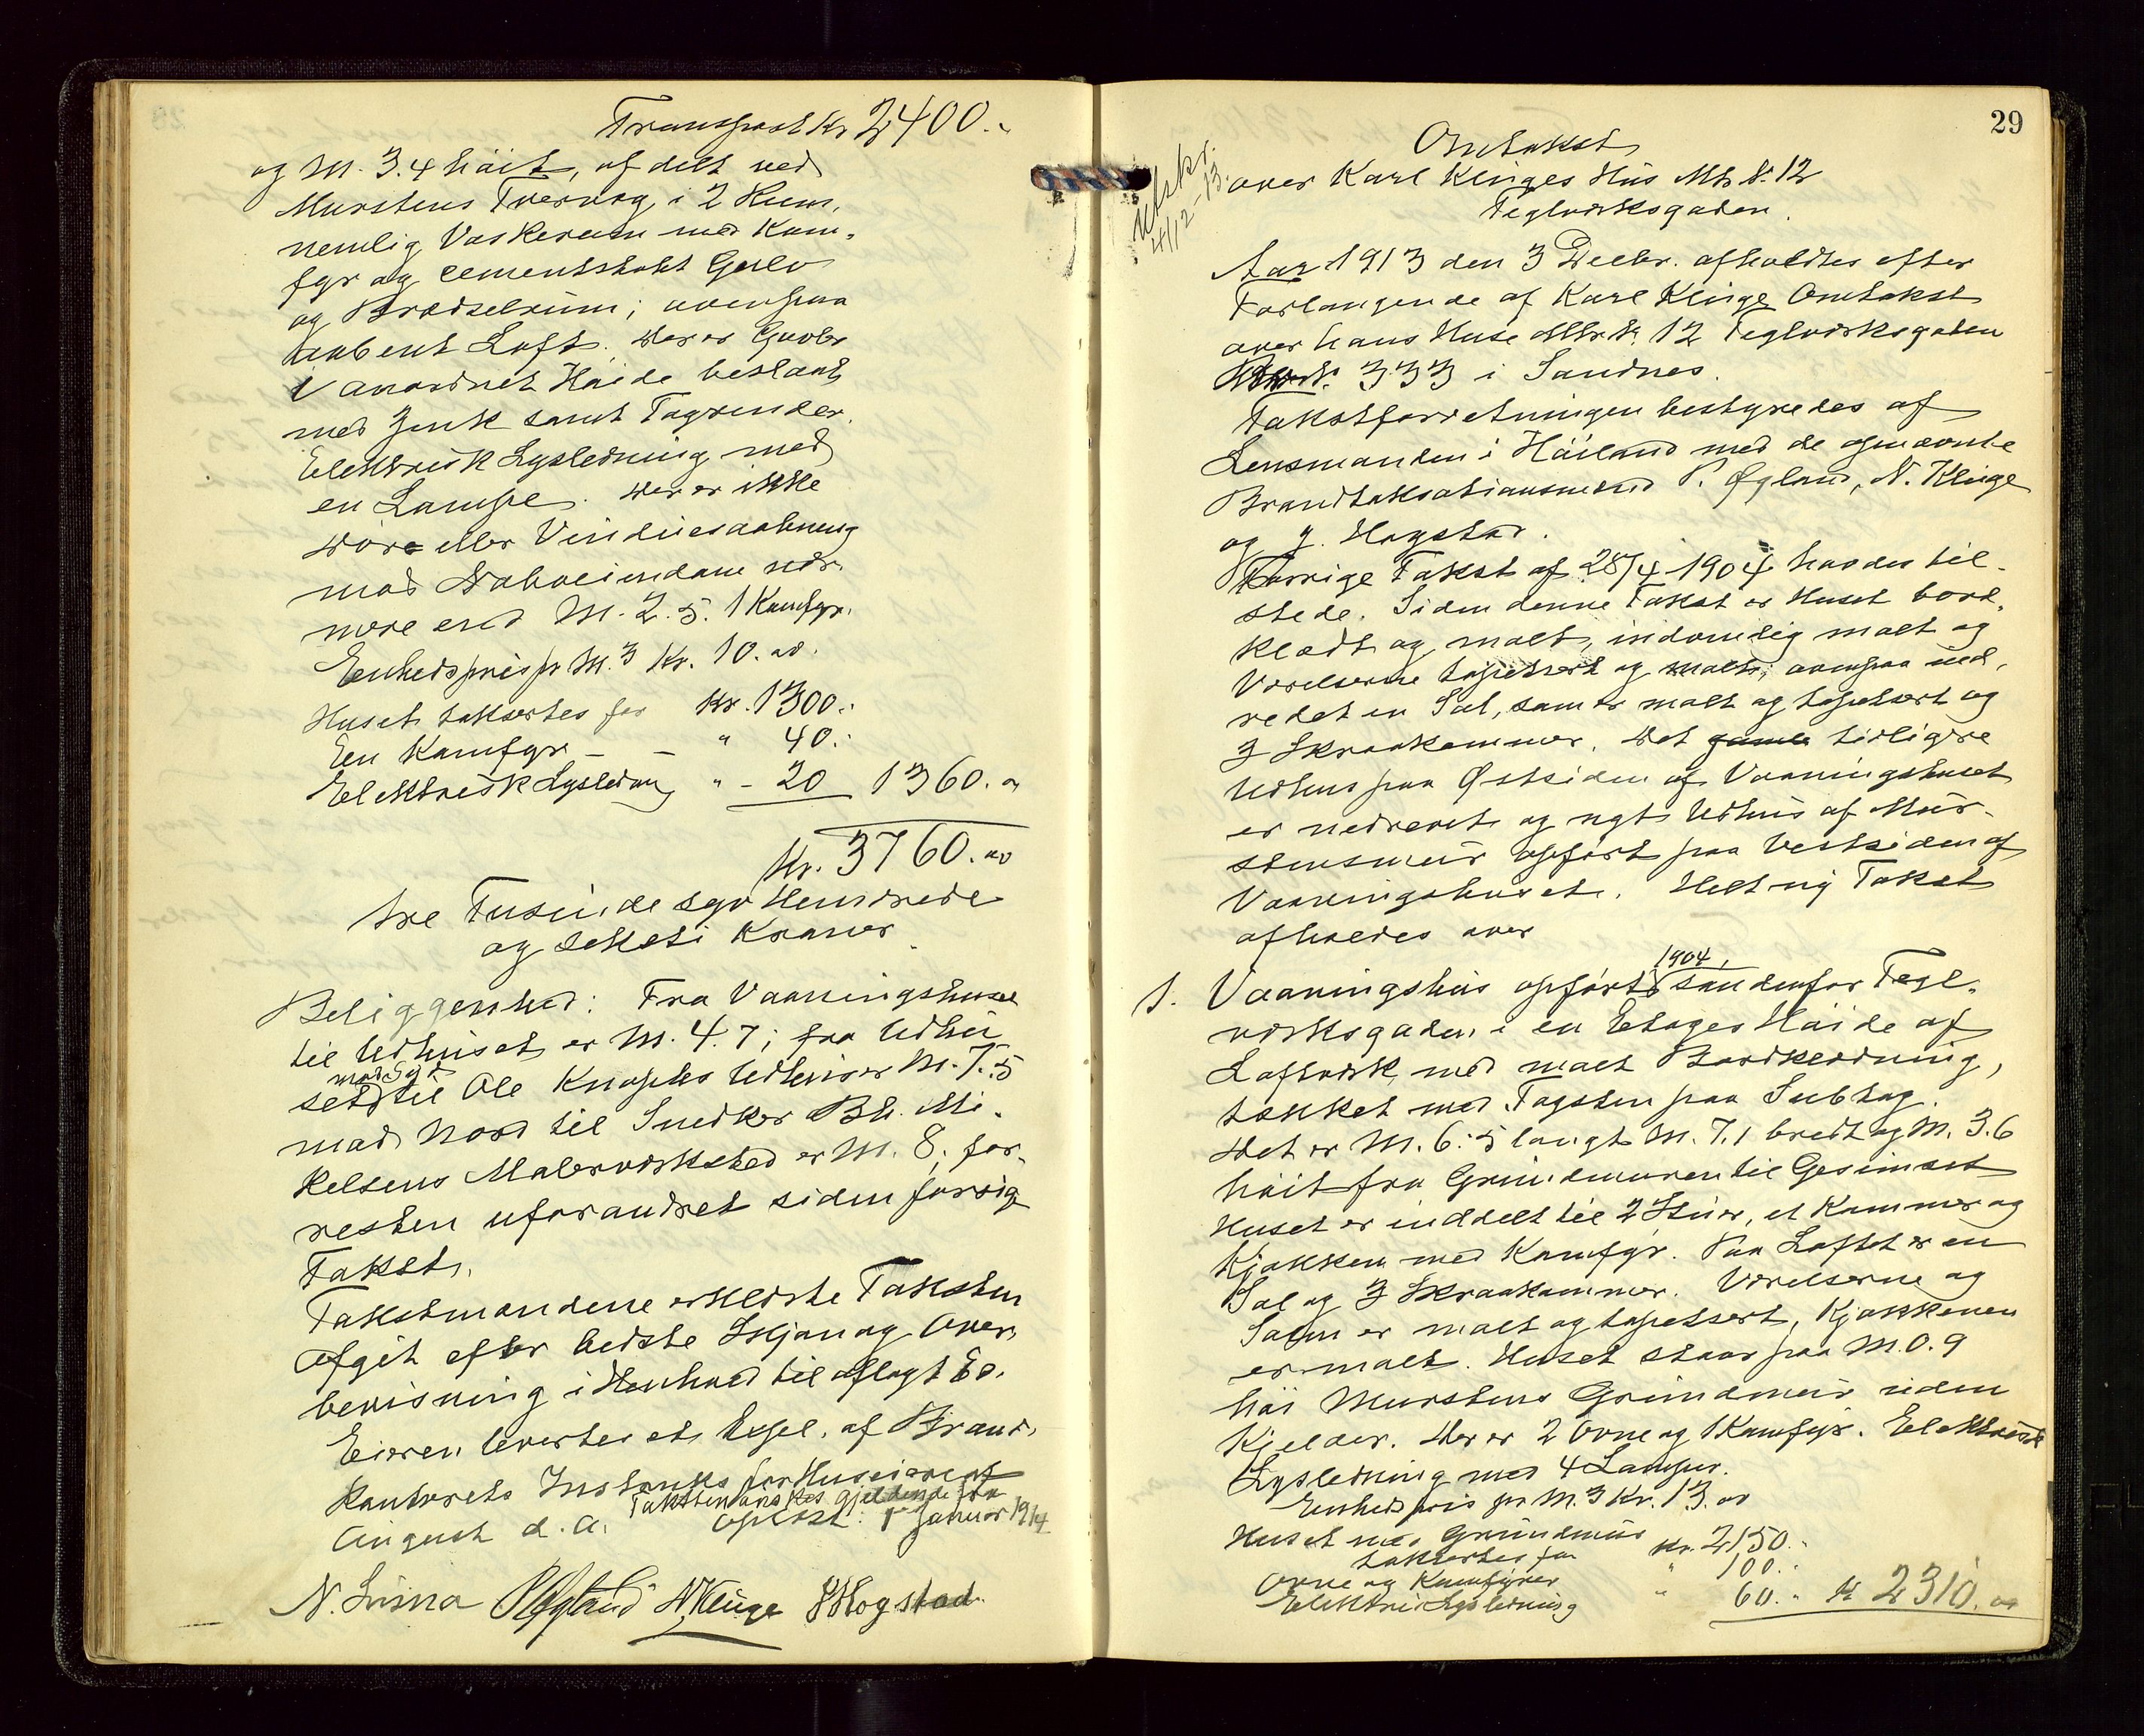 Transport Kr 2400.-
og M. 3.4 høit, afdelt ved
Murstens Tvervæg i 2 Rum,
nemlig Vaskerum med Kom-
fyr og cementstøbt Gulv
og Brædselrum; ovenpaa
aabent Loft. Der er Gavler
i anordnet Høide beslaat
med Zink samt Tagrender.
Elektrisk Lysledning med
en Lampe. Der er ikke
Døre eller Vinduesaabning
mod Naboeiendom nær-
mere end M. 2.5. 1 Komfyr.
Enhedspris pr M.3 Kr. 10.00.
Huset taksertes for Kr. 1300.-
En Komfyr - - " 40.-
Elektrisk Lysledning " - 20 1360.00
Kr. 3760.00
tre Tusinde syv Hundrede
og seksti Kroner.
Beliggenhed: Fra Vaaningshuset
til Udhuset er M. 4.7; fra Udhus
mod Syd
set til Ole Knophs Udhus er M. 7.5
mod Nord til Snedker Bh. Mi-
kelsens Malerværksted er M. 8; for-
resten uforandret siden forrige
Takst.
Takstmændene erklærte Taksten
afgit efter bedste Skjøn og Over-
bevisning i Henhold til aflagt Ed.
Eieren levertes et Expl. af Brand-
kontorets Instruks for Huseiere af
Taksten ønskes gjeldende fra
August d. A. Oplæst: 1 Januar 1914
N. Lura P Øgland N. Klinge J Hogstad
29
Utskr.
4/12-13.
Omtakst
over Karl Klinges Hus Mtr. No. 12
Teglverksgaden.
Aar 1913 den 3 Decbr. afholdtes efter
Forlangende af Karl Klinge Omtakst
over hans Huse Mtr. No. 12 Teglværksgaden
333 i Sandnes.
Takstforretningen bestyredes af
Lensmanden i Høiland med de opnævnte
Brandtakstationsmænd P. Øgland, N. Klinge
og J. Hogstad.
Forrige Takst af 28/4 1904 havdes til-
stede. Siden denne Takst er Huset bord-
klædt og malt, indvendig malt og
Værelserne tapetsert og malt; ovenpaa ind-
redet en Sal, som er malt og tapetsert og
3 Skraakammer. Det gamle tidligere
Udhus paa Østsiden af Vaaningshuset
er nedrevet og nyt Udhus af Mur-
stensmur opført paa Vestsiden af
Vaaningshuset. Helt ny Takst
afholdes over
1904,
1. Vaaningshus opført søndenfor Tegl-
værksgaden i en Etages Høide af
Laftværk med malt Bordklædning,
tækket med Tagsten paa Subtag.
Det er M. 6.5 langt M. 7.1 bredt og M. 3.6
høit fra Grundmuren til Gesimset
Huset er inddelt til 2 Stuer, et Kammer og
Kjøkken med Komfyr. Paa Loftet er en
Sal og 3 Skraakammer. Værelserne og
Salen er malt og tapetsert, Kjøkkenen
er malt. Huset staar paa M. 0.9
høi Murstens Grundmur uden
Kjelder. Der er 2 Ovne og 1 Komfyr. Elektrisk
Lysledning med 4 Lamper.
Enhedspris pr M.3 Kr. 13.00
Huset med Grundmur
taksertes for Kr. 2150.-
Ovne og Komfyrer " 100.-
Elektrisk Lysledning " 60.- Kr 2310.00